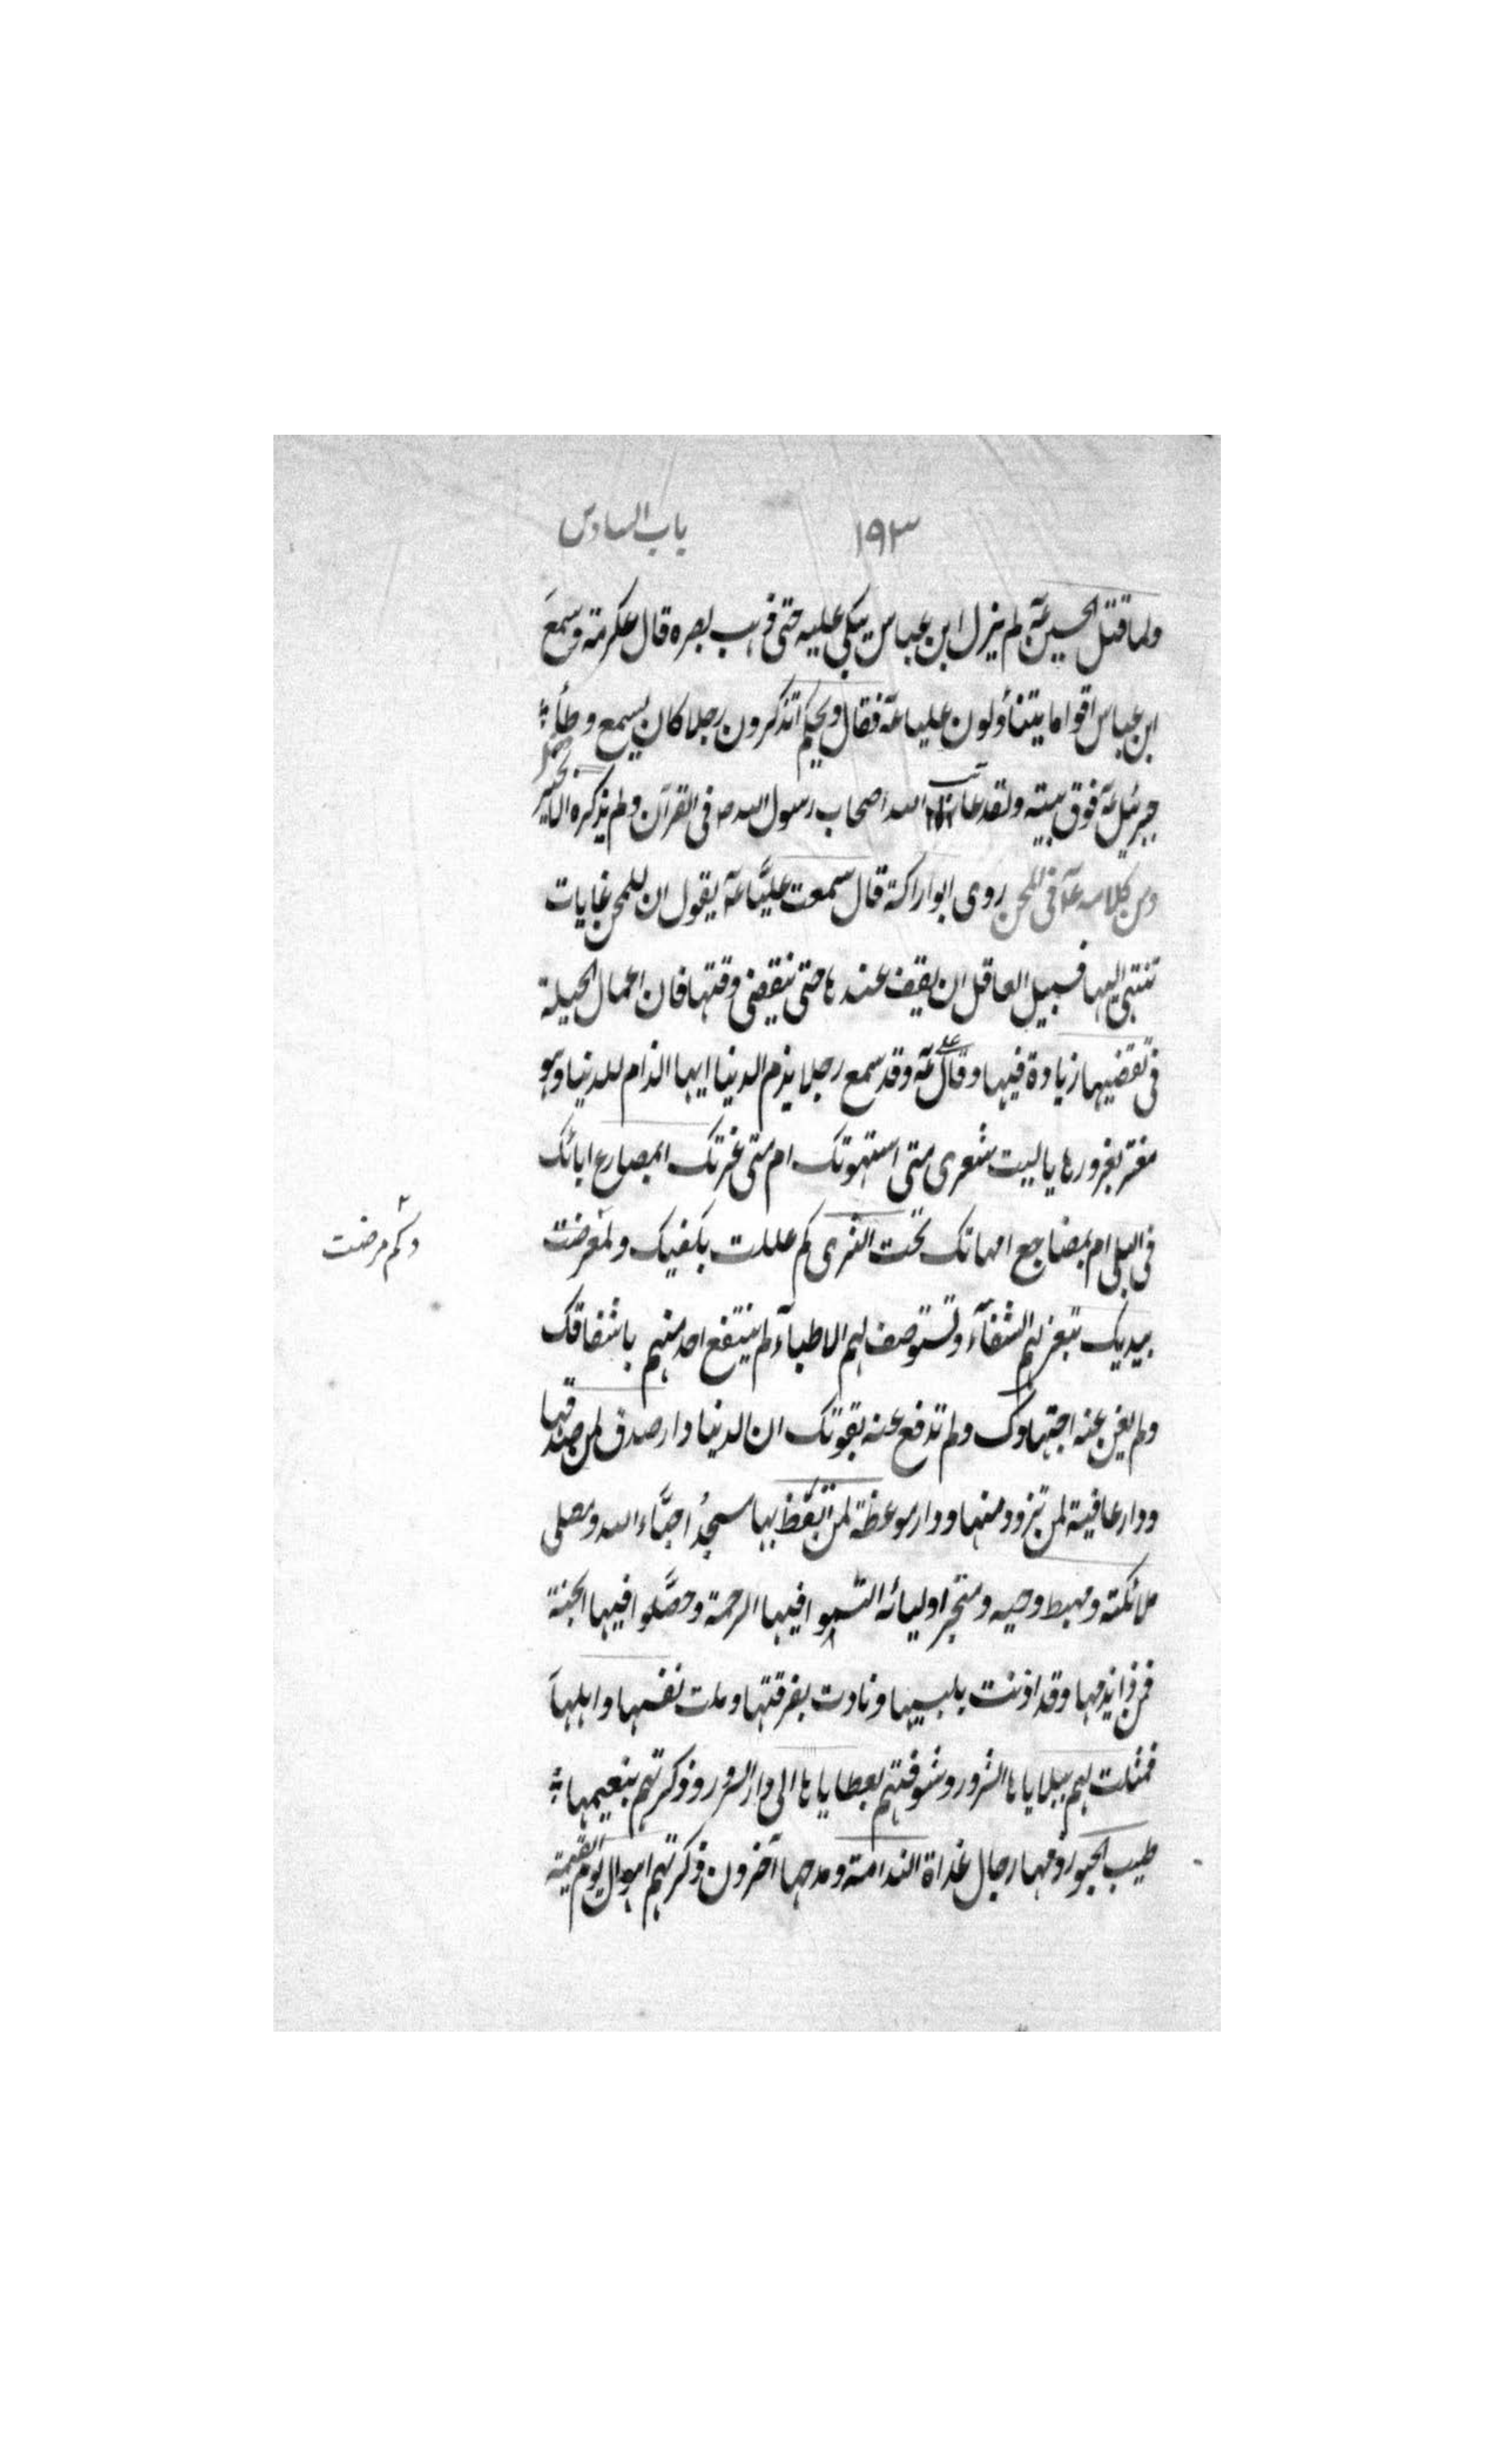 ١٩٣ باب السادس
ولما قتل الحسين عه لم يزل ابن عباس يبكي عليه حتى ذهب بصره قال عكرمة وسمع
ابن عباس اقواما يتنأولون عليا عه فقال ويحكم اتذكرون رجلا كان يسمع وطأ
جبرئيل عه فوق بيته ولقد عاتب الله اصحاب رسول الله ص فى القرآن ولم يذكره الا بخير
ومن كلامه عه فى المحن روى ابو اراكة قال سمعت عليّا عه يقول ان للمحن غايات
تنتهي اليها فسبيل العاقل ان يقف عندها حتى ينقضى وقتها فان اعمال الحيلة
فى تقضيها زيادة فيها وقال عه وقد سمع رجلا يذم الدنيا ايها الذام للدنيا وهو
مغتر بغرورها يا ليت شعرى متى استهوتك ام متى غرتك ابمصارع ابائك
فى البلى ام بمضاجع امهاتك تحت الثرى كم عللت بكفيك ولم مرضت
وكم مرضت
بيديك تبغى لهم الشفآء وتستوصف لهم الاطبآء لم ينتفع احد منهم باشفاقك
ولم يغن عنه اجتهادك ولم تدفع عنه بقوتك ان الدنيا دار صدق لمن صدقها
ودار عافية لمن تزود منها ودار موعظة لمن اتعظ بها مسجد احبّاء الله ومصلى
ملائكته ومهبط وحيه ومتجر اوليائه اكتسبوا فيها الرحمة وحصّلوا فيها الجنة
فمن ذا يذمها وقد اذنت ببينها ونادت بفرقتها ونعت نفسها واهلها
فمثلت لهم ببلاياها الشرور وشوقتهم بعطاياها الى دار السرور وذكرتهم بنعيمها
طيب الحبور وذمها رجال غداة الندامة ومدحها آخرون ذكرتهم اهوال يوم القيمة